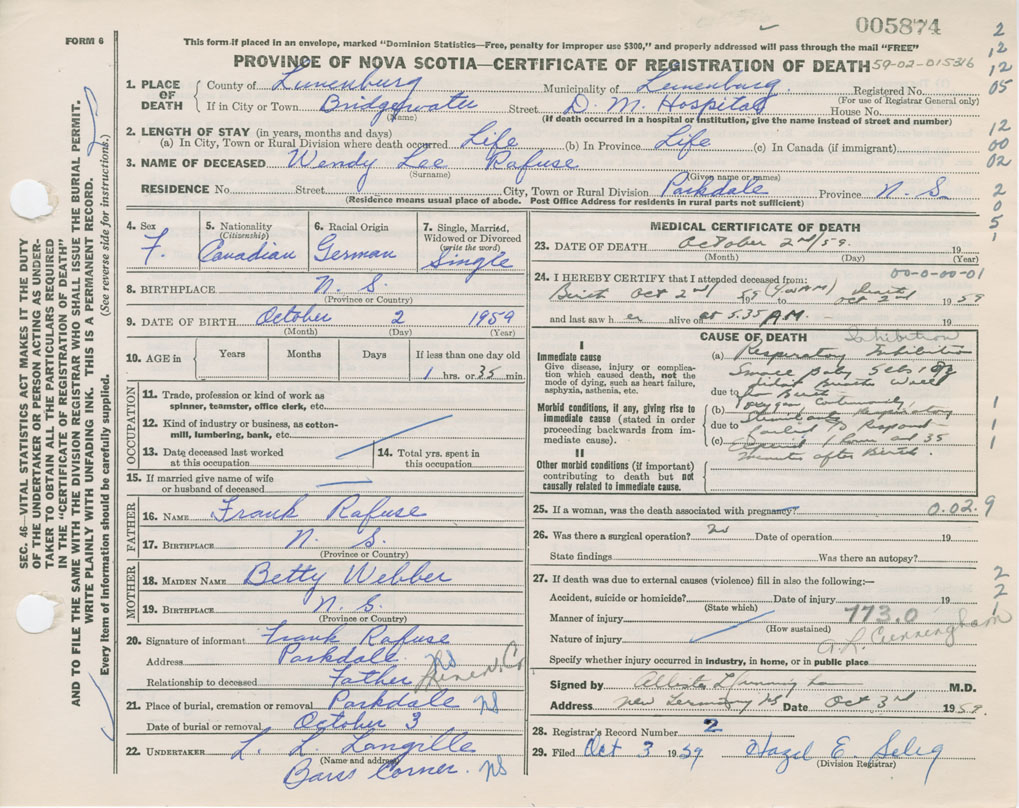 005874
FORM 6
This form if placed in an envelope, marked "Dominion Statistics—Free, penalty for improper use $300," and properly addressed will pass through the mail "FREE"
PROVINCE OF NOVA SCOTIA—CERTIFICATE OF REGISTRATION OF DEATH 59-02-015316
1. PLACE OF DEATH
County of Lunenburg Municipality of Lunenburg Registered No.
(For use of Registrar General only)
If in City or Town Bridgewater Street D. M. Hospital House No.
(Name) (If death occurred in a hospital or institution, give the name instead of street and number)
2. LENGTH OF STAY (in years, months and days)
(a) In City, Town or Rural Division where death occurred Life (b) In Province Life (c) In Canada (if immigrant)
3. NAME OF DECEASED Wendy Lee Rafuse
(Surname) (Given name or names)
RESIDENCE No. Street City, Town or Rural Division Parkdale Province N. S.
(Residence means usual place of abode. Post Office Address for residents in rural parts not sufficient)
2
12
12
05
12
00
02
2
0
5
1
4. Sex F.
5. Nationality (Citizenship) Canadian
6. Racial Origin German
7. Single, Married, Widowed or Divorced (write the word) Single
8. BIRTHPLACE N. S.
(Province or Country)
9. DATE OF BIRTH October 2 1959
(Month) (Day) (Year)
10. AGE in Years Months Days If less than one day old
1 hrs. or 35 min.
OCCUPATION
11. Trade, profession or kind of work as spinner, teamster, office clerk, etc.
12. Kind of industry or business, as cotton-mill, lumbering, bank, etc.
13. Date deceased last worked at this occupation
14. Total yrs. spent in this occupation
15. If married give name of wife or husband of deceased
FATHER
16. NAME Frank Rafuse
17. BIRTHPLACE N. S.
(Province or Country)
MOTHER
18. MAIDEN NAME Betty Webber
19. BIRTHPLACE N. S.
(Province or Country)
20. Signature of informant Frank Rafuse
Address Parkdale NS
Relationship to deceased Father
21. Place of burial, cremation or removal Parkdale NS
Date of burial or removal October 3
22. UNDERTAKER L. L. Langille
(Name and address)
Barss Corner. NS
MEDICAL CERTIFICATE OF DEATH
23. DATE OF DEATH October 2nd/59. 19
(Month) (Day) (Year)
00-0-00-01
24. I HEREBY CERTIFY that I attended deceased from:
Birth Oct 2nd 59 to death Oct 2nd 1959
and last saw her alive on at 5.35 A.M. 19
CAUSE OF DEATH
Inhibition
I
Immediate cause
Give disease, injury or complication which caused death, not the mode of dying, such as heart failure, asphyxia, asthenia, etc.
(a) Respiratory Inhibition
Small baby 5 lbs
due to
Birth
Morbid conditions, if any, giving rise to immediate cause (stated in order proceeding backwards from immediate cause).
(b) oxygen continuously
due to respiratory
failed to Respond
(c) 1 hour and 35
minutes after Birth.
1
1
1
II
Other morbid conditions (if important) contributing to death but not causally related to immediate cause.
25. If a woman, was the death associated with pregnancy? 0.02.9
26. Was there a surgical operation? no Date of operation 19
State findings Was there an autopsy?
27. If death was due to external causes (violence) fill in also the following:—
Accident, suicide or homicide? Date of injury 19
(State which)
Manner of injury 773.0
(How sustained)
Nature of injury A. L. Cunningham
Specify whether injury occurred in industry, in home, or in public place
2
2
1
Signed by M.D.
Address New Germany NS Date Oct 3rd 1959.
28. Registrar's Record Number 2
29. Filed Oct 3 1959 Hazel E. Selig
(Division Registrar)
SEC. 46—VITAL STATISTICS ACT MAKES IT THE DUTY OF THE UNDERTAKER OR PERSON ACTING AS UNDERTAKER TO OBTAIN ALL THE PARTICULARS REQUIRED IN THE "CERTIFICATE OF REGISTRATION OF DEATH" AND TO FILE THE SAME WITH THE DIVISION REGISTRAR WHO SHALL ISSUE THE BURIAL PERMIT.
WRITE PLAINLY WITH UNFADING INK. THIS IS A PERMANENT RECORD.
Every item of information should be carefully supplied. (See reverse side for instructions.)